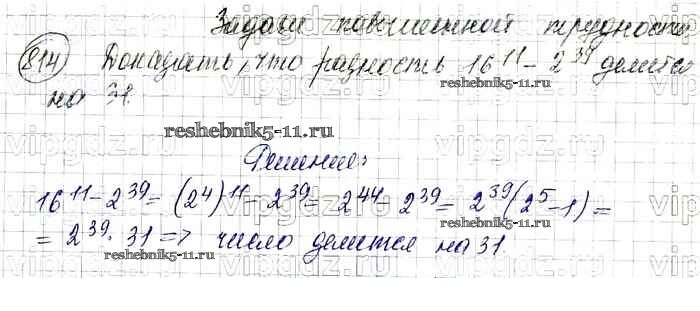 Задачи повышенной трудности
814 Доказать, что разность 16¹¹ - 2³⁹ делится
на 31.
reshebnik5-11.ru
reshebnik5-11.ru
Решение:
16¹¹ - 2³⁹ = (2⁴)¹¹ - 2³⁹ = 2⁴⁴ - 2³⁹ = 2³⁹(2⁵ - 1) =
= 2³⁹ · 31 => число делится на 31.
reshebnik5-11.ru
reshebnik5-11.ru
vipgdz.ru